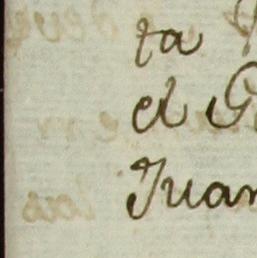 ta
el G
Juan